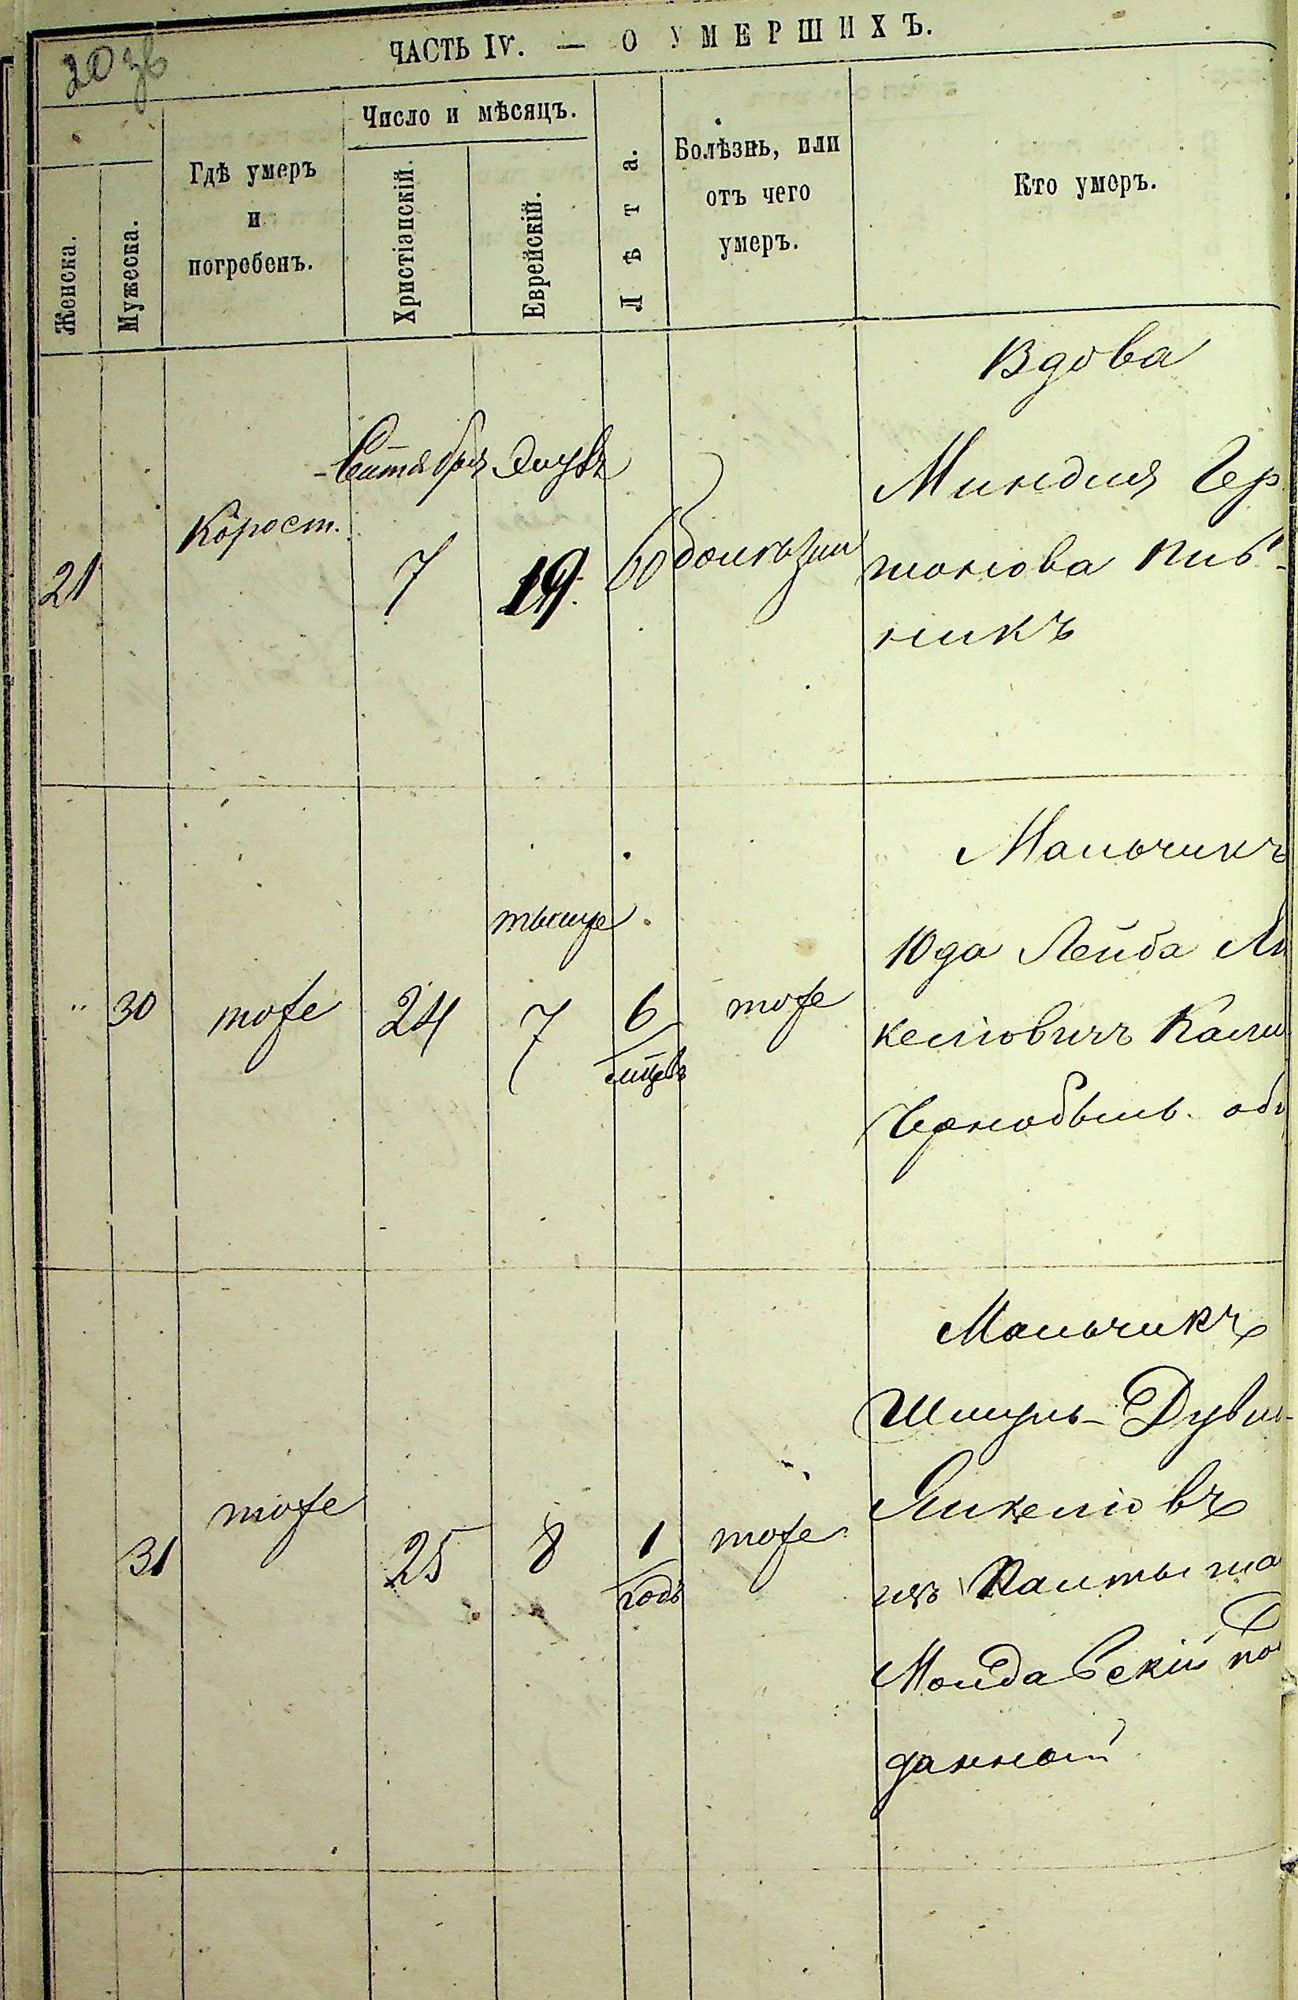 20 зв
ЧАСТЬ IV. — О УМЕРШИХЪ.
Женска.
Мужеска.
Гдѣ умеръ
и
погребенъ.
Число и мѣсяцъ.
Христіанскій.
Еврейскій.
Лѣта.
Болѣзнь, или
отъ чего
умеръ.
Кто умеръ.
21
Корост.
Сентября
7
Элувъ
19
60
болезни
Вдова
Миндля Гер
шонова Пив
никъ
" 30
тоже
24
тысще
7
6
мцевъ
тоже
Мальчикъ
Юда Лейба Ян
келіовичъ Калин
Чернобыль. об
31
тоже
25
8
1
годъ
тоже
Мальчикъ
Шмуль-Дувид-
Янкеліовъ
изъ
Молдавскій под
данный